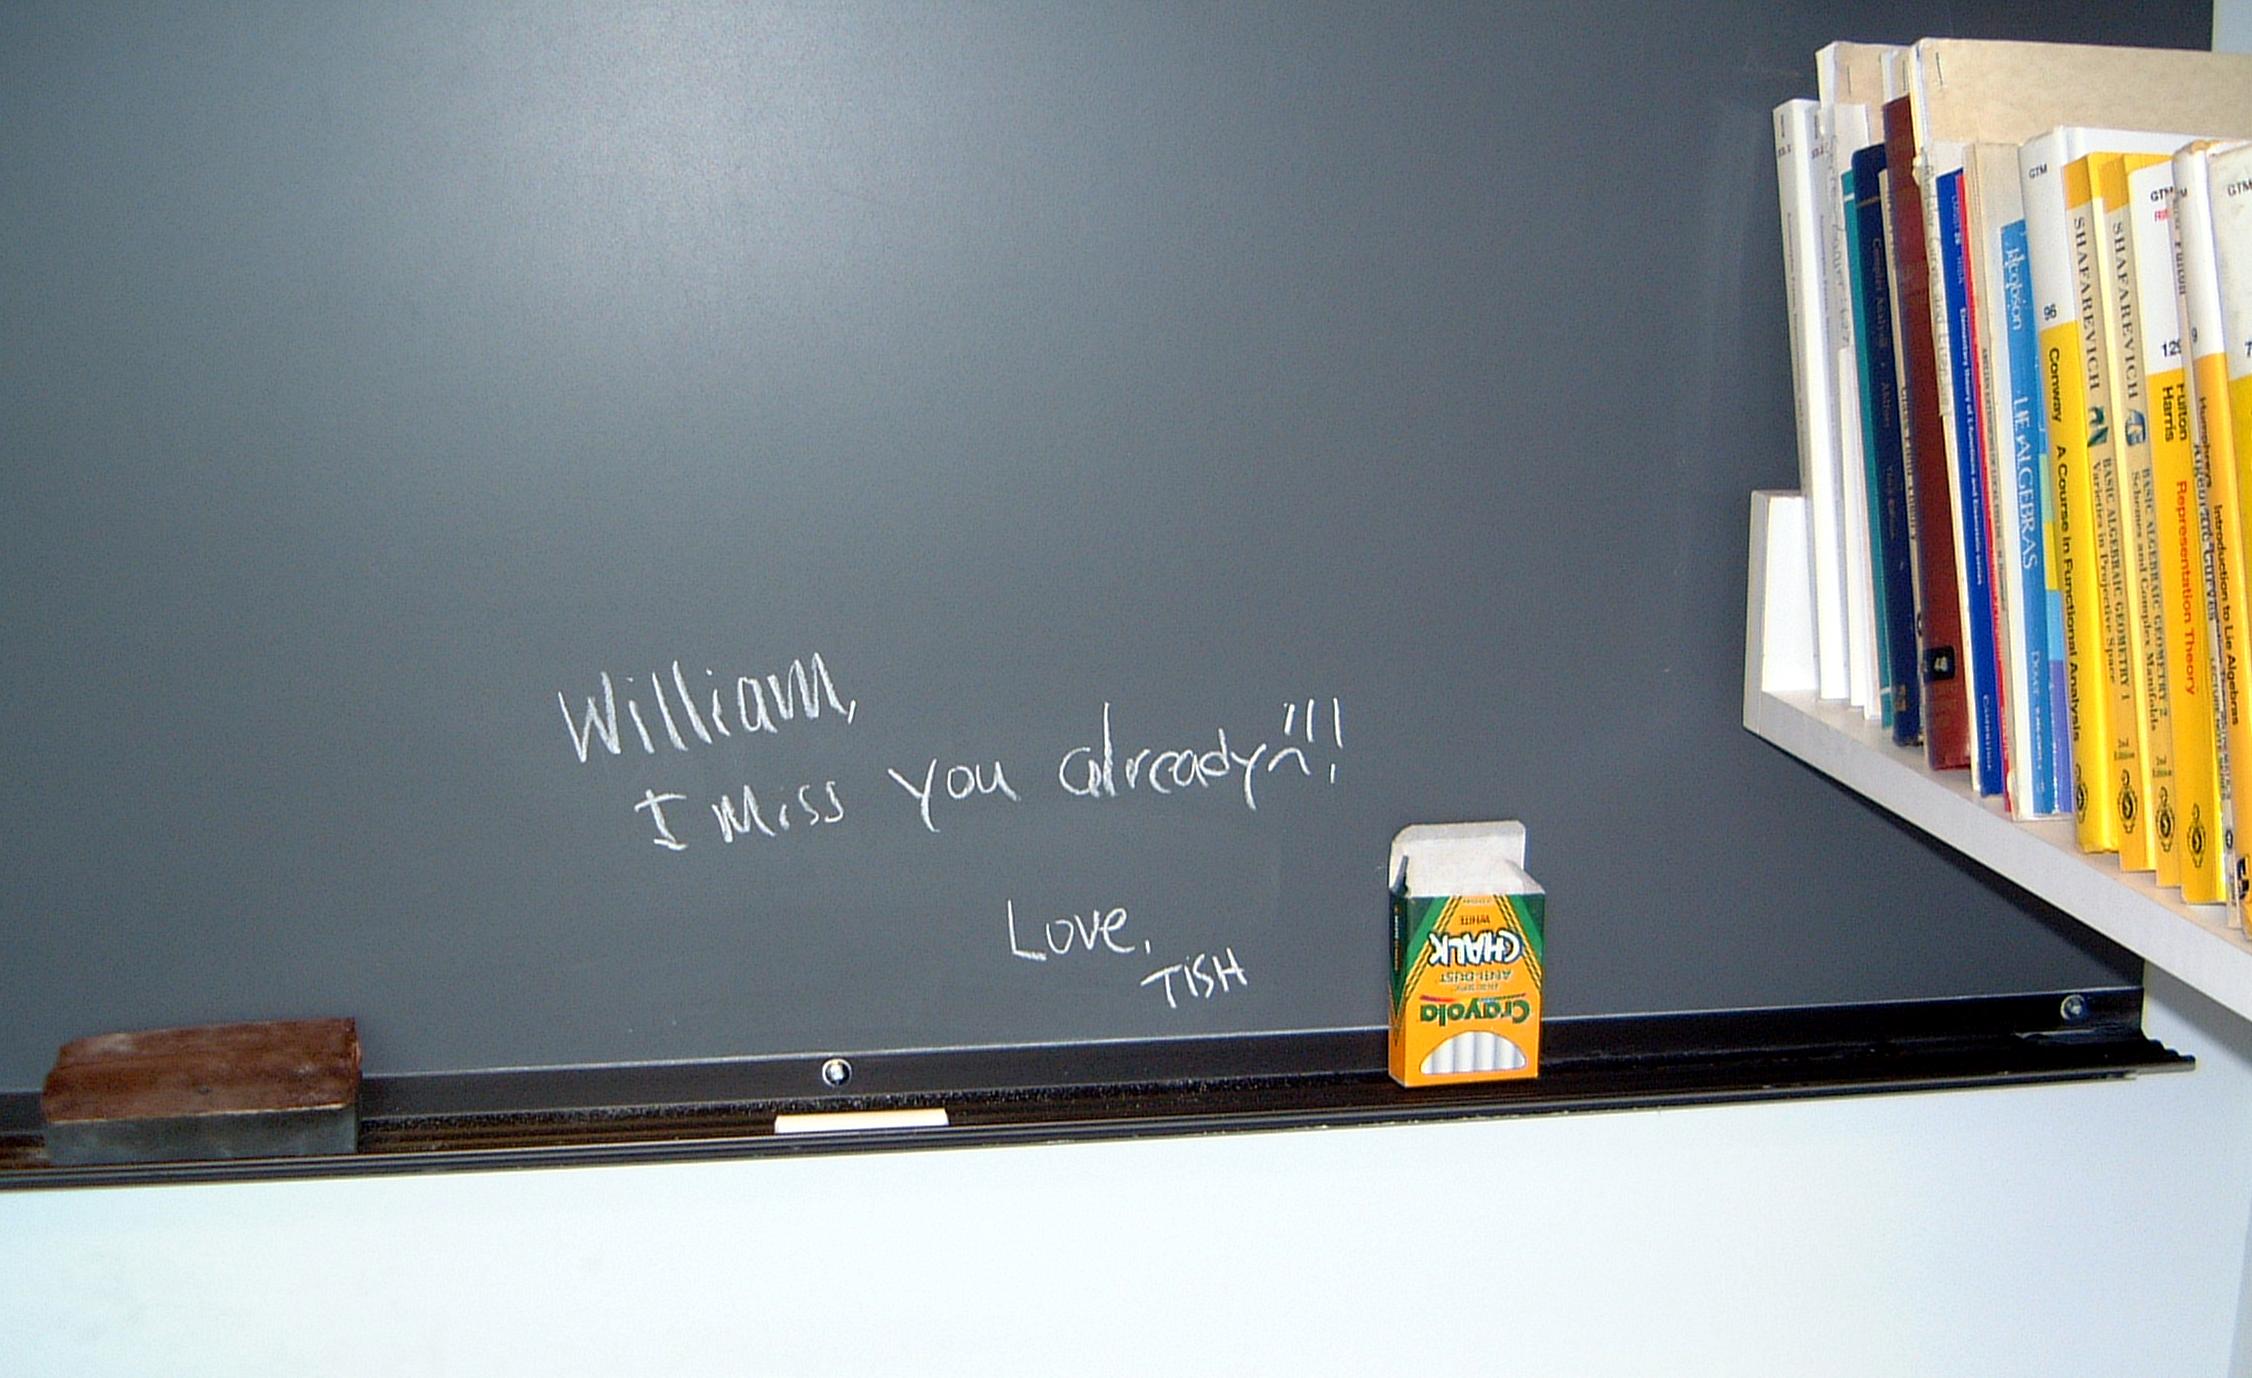 William,
I Miss you already!!!
Love,
TISH
WHITE
CHALK
ANTI-DUST
Crayola
Jacobson LIE ALGEBRAS
GTM
96
Conway A Course in Functional Analysis
SHAFAREVICH BASIC ALGEBRAIC GEOMETRY 1
Varieties in Projective Space
2nd Edition
SHAFAREVICH BASIC ALGEBRAIC GEOMETRY 2
Schemes and Complex Manifolds
2nd Edition
GTM
129
Fulton
Harris
Representation Theory
9
Humphreys Introduction to Lie Algebras
GTM
7